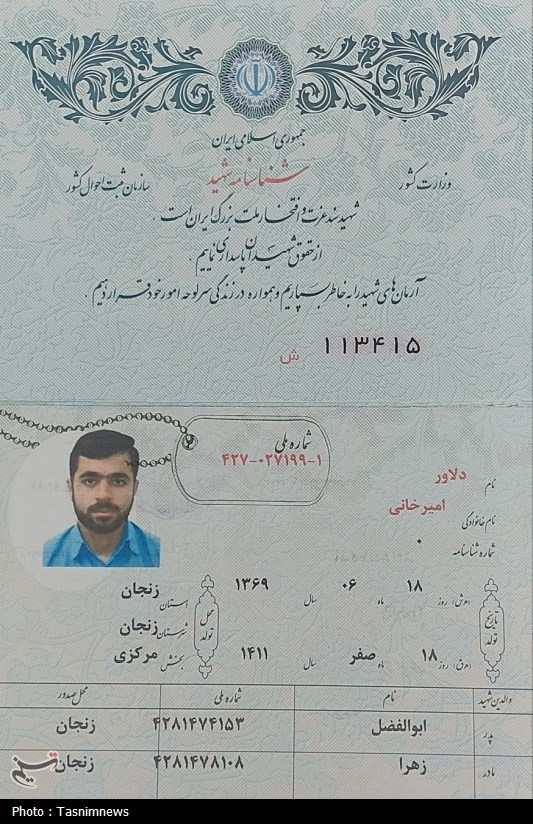 جمهوری اسلامی ایران
وزارت کشور
شناسنامه شهید
سازمان ثبت احوال کشور
شهید سند عزت و افتخار ملت بزرگ ایران است .
از حقوق شهیدان پاسداری نماییم .
آرمان‌های شهید را به خاطر بسپاریم و همواره در زندگی سرلوحه امور خود قرار دهیم .
ش ۱۱۳۴۱۵
شماره ملی
۴۲۷-۰۲۷۱۹۹-۱
نام دلاور
نام خانوادگی امیرخانی
شماره شناسنامه ۰
تاریخ تولد
(ه‍.ش) روز ۱۸ ماه ۰۶ سال ۱۳۶۹
(ه‍.ق) روز ۱۸ ماه صفر سال ۱۴۱۱
محل تولد
استان زنجان
شهرستان زنجان
بخش مرکزی
والدین شهید نام شماره ملی محل صدور
پدر ابوالفضل ۴۲۸۱۴۷۴۱۵۳ زنجان
مادر زهرا ۴۲۸۱۴۷۸۱۰۸ زنجان
تسنیم
Photo : Tasnimnews